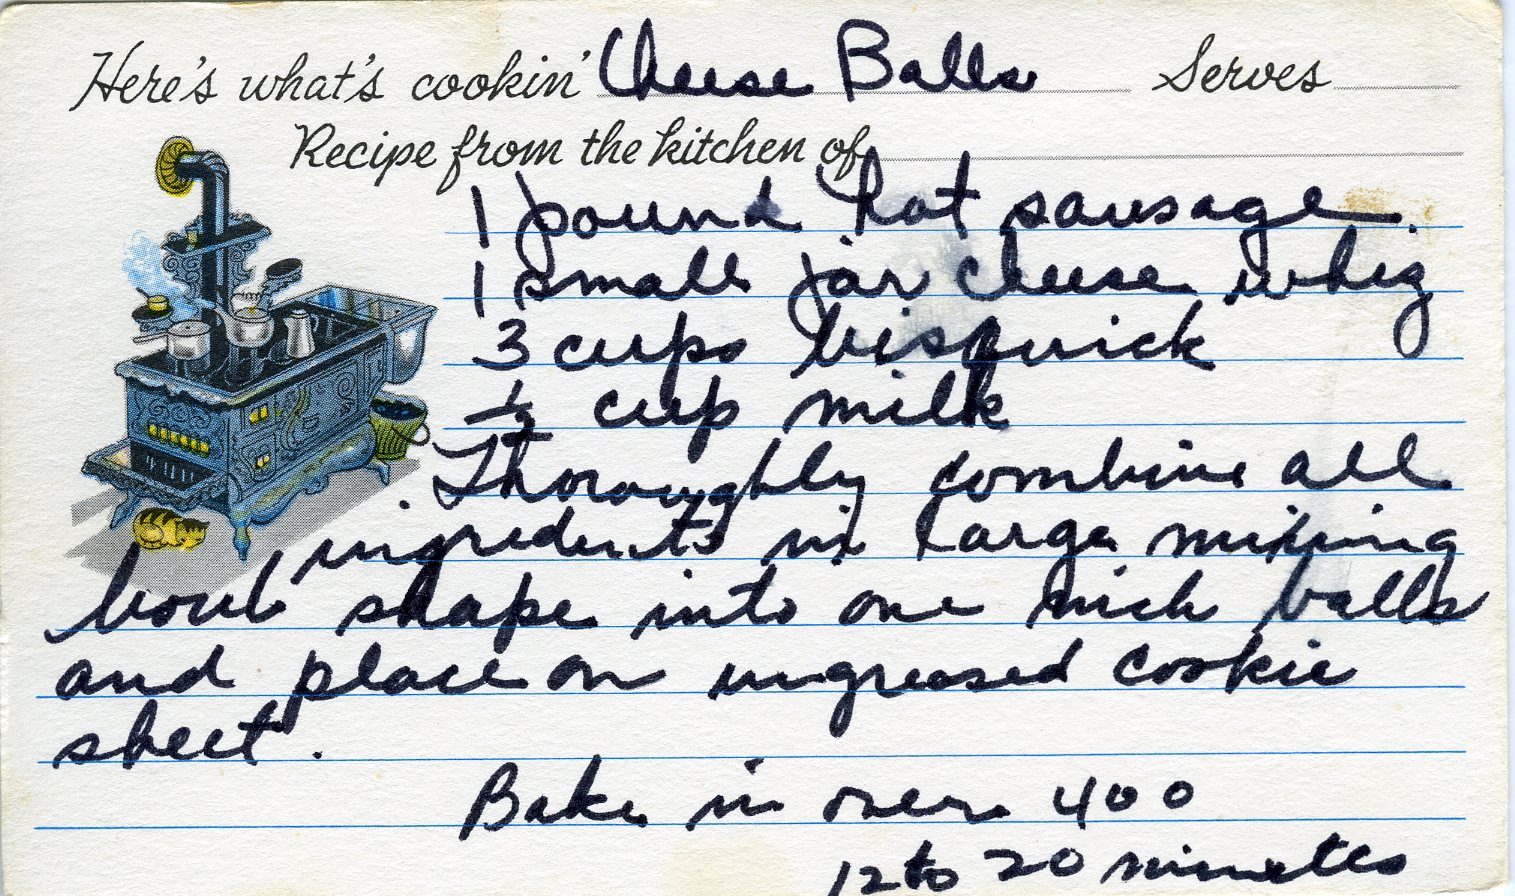 Here's what's cookin' Cheese Balls Serves
Recipe from the kitchen of
1 pound hot sausage.
1 small jar cheese whiz
3 cups bisquick
½ cup milk
Thoroughly combine all
ingredients in large mixing
bowl shape into one inch balls
and place on ungreased cookie
sheet.
Bake in oven 400
12 to 20 minutes